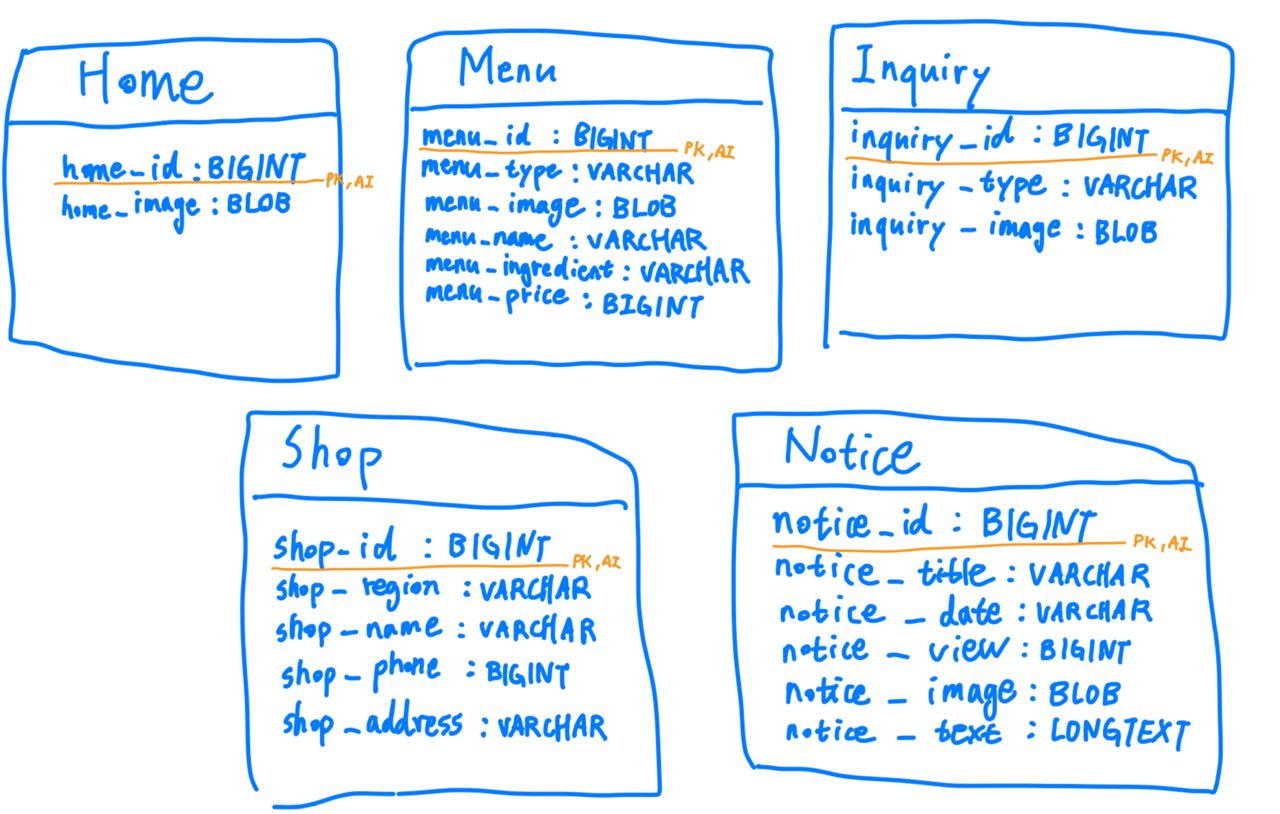 Home
home_id : BIGINT PK, AI
home_image : BLOB
Menu
menu_id : BIGINT PK, AI
menu_type : VARCHAR
menu_image : BLOB
menu_name : VARCHAR
menu_ingredient : VARCHAR
menu_price : BIGINT
Inquiry
inquiry_id : BIGINT PK, AI
inquiry_type : VARCHAR
inquiry_image : BLOB
Shop
shop_id : BIGINT PK, AI
shop_region : VARCHAR
shop_name : VARCHAR
shop_phone : BIGINT
shop_address : VARCHAR
Notice
notice_id : BIGINT PK, AI
notice_title : VARCHAR
notice_date : VARCHAR
notice_view : BIGINT
notice_image : BLOB
notice_text : LONGTEXT